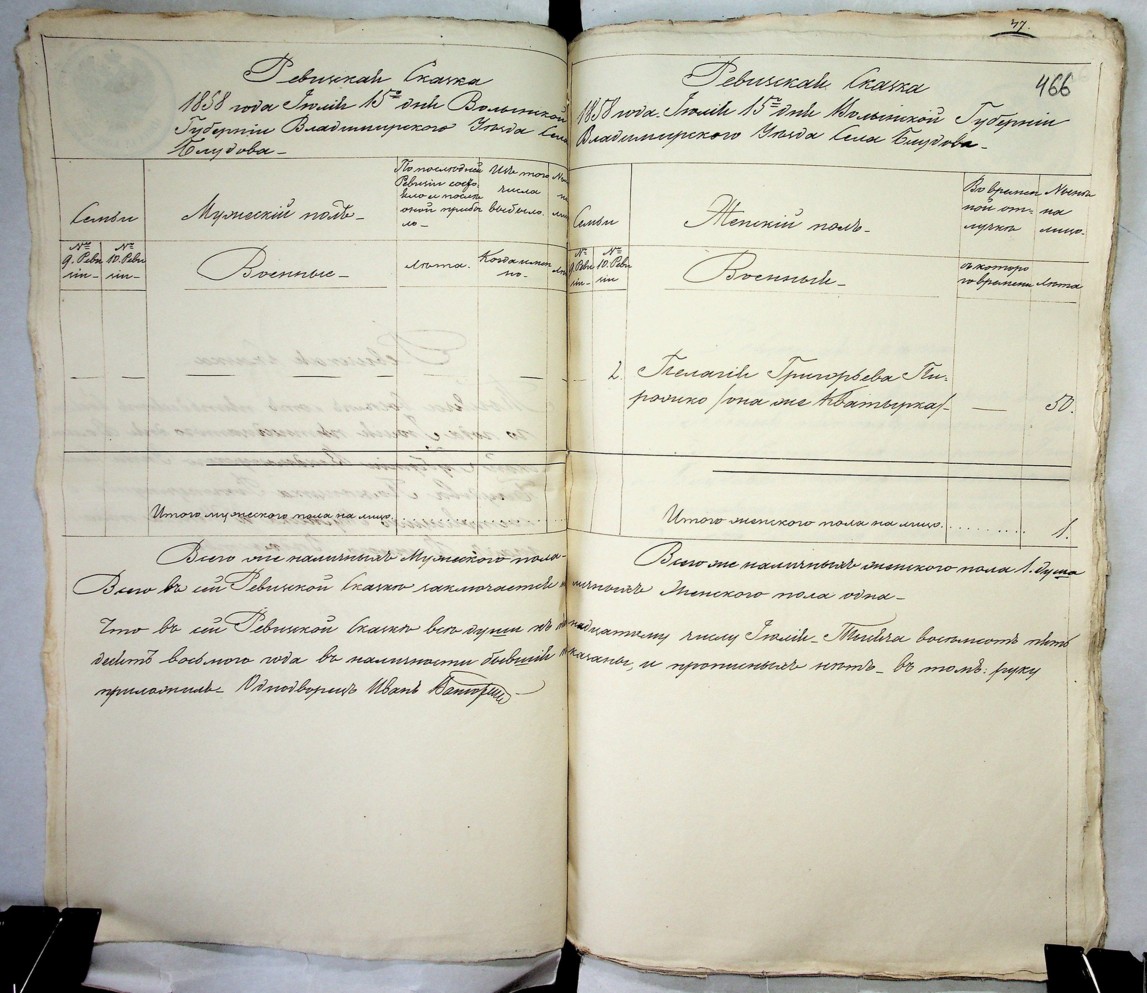 77
466
Ревизская Сказка
1858 года Іюля 15го дня Волынской
Губерніи Владимирскаго Уѣзда Села
Блудова
Семьи
Мужескій полъ
По последней
Ревизіи состо
яло и после
оной прибы
ло
Изъ того
числа
выбыло.
№ 9. Реви
зіи
№ 10. Реви
зіи
Военные
Лѣта.
Когда имен
но.
Итого мужескаго пола на лицо
Всего же наличныхъ Мужескаго пола
Ревизская Сказка
1858 года Іюля 15го дня Волынской Губерніи
Владимирскаго Уѣзда Села Блудова
Семьи
Женскій полъ
Во времен
ной от
лучкѣ
Нынѣ
на
лицо.
№ 9. Реви
зіи
№ 10. Реви
зіи
Военный
съ которо
го времени
Лѣта
2. Пелагія Григорьева Пи-
рожко /она же Кватырка/ — 50.
Итого женскаго пола на лицо 1.
Всего же наличныхъ женскаго пола 1. душа
Всего въ сей Ревизской Сказкѣ заключается наличныхъ Женскаго пола одна
Что въ сей Ревизской Сказкѣ всѣ души къ пятнадцатому числу Іюля Тысяча восемсотъ пять
десятъ восьмого года въ наличности бывшія показаны, и прописныхъ нѣтъ въ томъ: руку
приложилъ Однодворецъ Иванъ